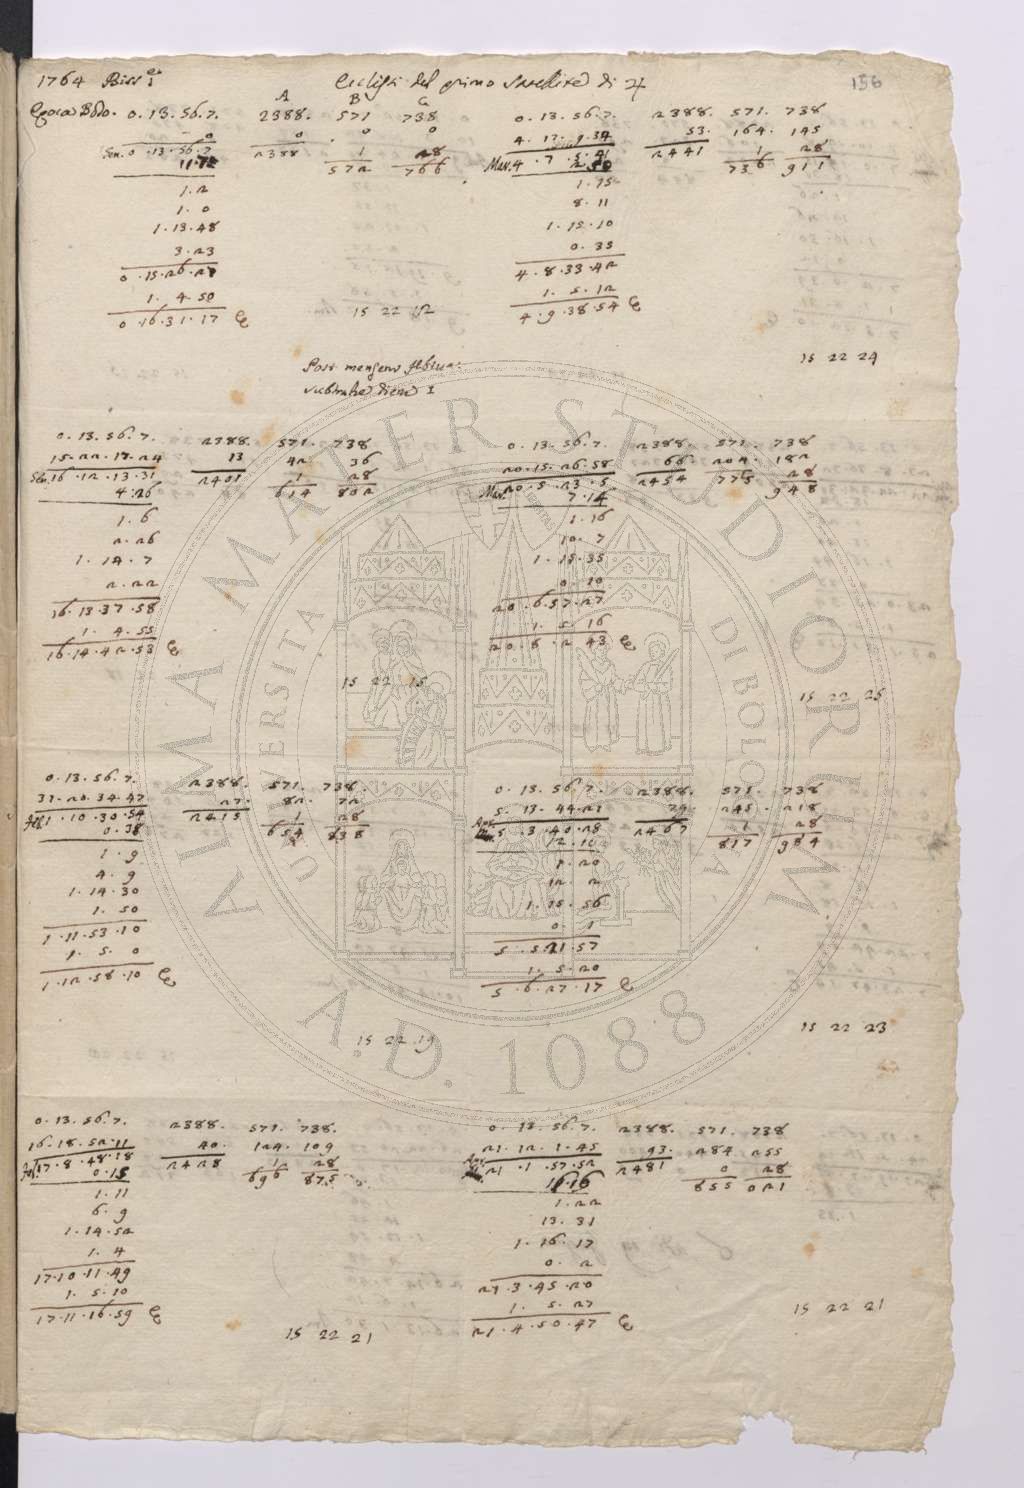 1764 Biss.
Eclissi del primo Satellite di ♃
156
A B C
Epoca Bod. 0. 13. 56. 7. 2388. 571 738
0 0 0 0
Gen. 0. 13. 56. 7 2388 1 28
572 766
1. 2
1. 0
1. 13. 48
3. 23
0. 15. 26. 27
1. 4. 50
0. 16. 31. 17
15 22 12
0. 13. 56. 7. 2388. 571. 738
4. 17. 9. 34 53. 164. 145
Mar. 4. 7. 5. 41 2441 1 28
2. 50 736 911
1. 15
8. 11
1. 15. 10
0. 35
4. 8. 33. 42
1. 5. 12
4. 9. 38. 54
15 22 24
Post mensem febru:
subtrahe diem 1
0. 13. 56. 7. 2388. 571. 738
15. 22. 17. 24 13 42 36
Gen. 16. 12. 13. 31 2401 1 28
4. 26 614 802
1. 6
2. 26
1. 14. 7
2. 22
16. 13. 37. 58
1. 4. 55
16. 14. 42. 53
15 22 15
0. 13. 56. 7. 2388. 571. 738
20. 15. 26. 58 66. 204. 182
Mar. 20. 5. 23. 5 2454 775 28
7. 14 948
1. 16
10. 7
1. 15. 35
0. 10
20. 6. 57. 27
1. 5. 16
20. 8. 2 43
15 22 25
0. 13. 56. 7. 2388. 571. 738.
31. 20. 34. 47 27. 82. 72
Feb. 1. 10. 30. 54 2415 1 28
0. 38 654 838
1. 9
4. 9
1. 14. 30
1. 50
1. 11. 53. 10
1. 5. 0
1. 12. 58. 10
15 22 19
0. 13. 56. 7. 2388. 571. 738
5. 13. 44. 21 79. 245. 218
5. 3. 40. 28 2467 1 28
12. 10 817 984
1. 20
12. 2
1. 15. 56
0. 1
5. 5. 21. 57
1. 5. 20
5. 6. 27. 17
15 22 23
0. 13. 56. 7. 2388. 571. 738.
16. 18. 52. 11 40. 124. 109
Feb. 17. 8. 48. 18 2428 1 28
0. 15 696 875
1. 11
6. 9
1. 14. 52
1. 4
17. 10. 11. 49
1. 5. 10
17. 11. 16. 59
15 22 21
0. 13. 56. 7. 2388. 571. 738
21. 12. 1. 45 93. 284 255
21. 1. 57. 52 2481 0 28
16. 16 855 021
1. 22
13. 31
1. 16. 17
0. 2
21. 3. 45. 20
1. 5. 27
21. 4. 50. 47
15 22 21
ALMA MATER STUDIORUM
UNIVERSITÀ DI BOLOGNA
A.D. 1088